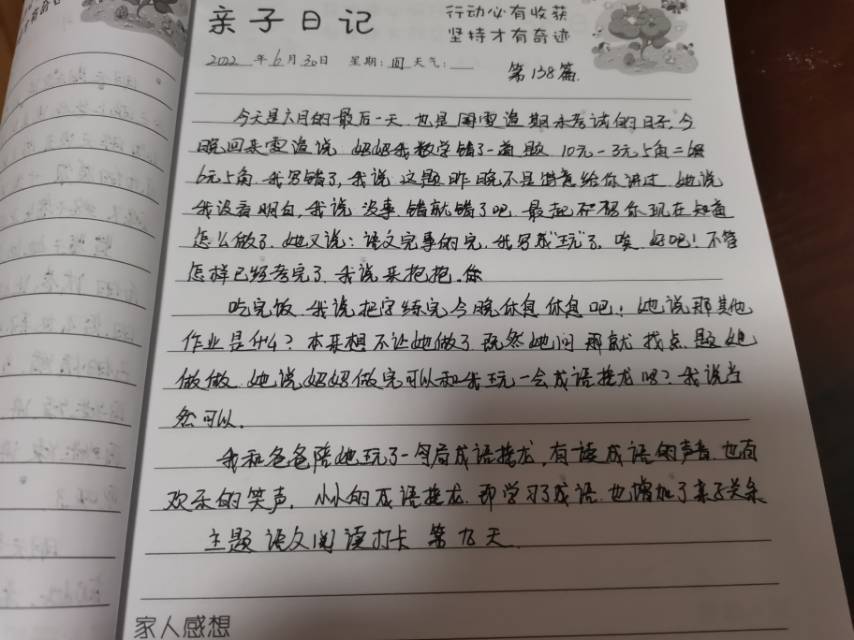 亲子日记
行动必有收获
坚持才有奇迹
2022 年 6 月 30 日 星期:四 天气:
第138篇.
今天是六月的最后一天.也是周雯造期末考试的日子.今
晚回来雯造说 妈妈我数学错了一道题 10元-3元5角=
6元5角.我写错了,我说 这题昨晚不是 给你讲过.她说
我没看明白,我说 没事.错就错了吧.最起码你现在知道
怎么做了.她又说:语文完事的完.我写成"玩"了.唉 好吧!不管
怎样已经考完了.我说来抱抱.你
吃完饭.我说把字练完今晚休息休息吧!她说那其他
作业是什么?本来想不让她做了.既然她问 那就 找点 题她
做做.她说妈妈做完可以和我玩一会成语接龙吗?我说当
然可以.
我和爸爸陪她玩了一局成语接龙.有读成语的声音.也有
欢乐的笑声.小小的成语接龙.即学习了成语.也增加了亲子关系
主题 语文阅读打卡 第78天
家人感想